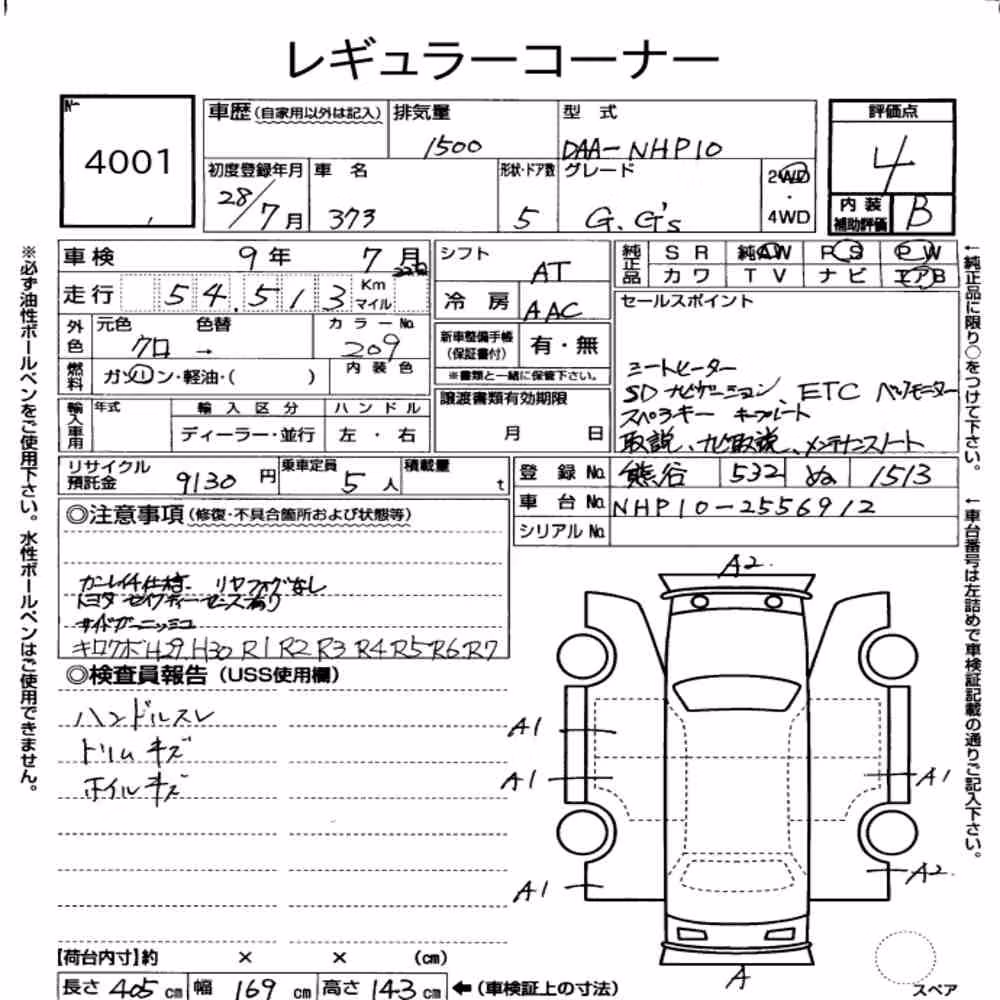 レギュラーコーナー
No.
4001
車歴 (自家用以外は記入)
排気量
1500
型式
DAA-NHP10
評価点
4
初度登録年月
28/7月
車名
373
形状・ドア数
5
グレード
G. G's
2WD
・
4WD
内装
補助評価
B
車検 9年 7月
走行 54,513 Km マイル
外色 元色 色替 カラーNo.
クロ → 209
燃料 ガソリン・軽油・( ) 内装色
輸入車用 年式 輸入区分 ハンドル
ディーラー・並行 左・右
シフト AT
冷房 AAC
新車整備手帳(保証書付) 有・無
※書類と一緒に保管下さい。
譲渡書類有効期限
月 日
純正品 SR 純正AW PS PW
カワ TV ナビ エアB
セールスポイント
シートヒーター
SDナビゲーション、ETC バックモニター
スペアキー キープレート
取説、ナビ取説、メンテナンスノート
リサイクル預託金 9130円 乗車定員 5人 積載量 t
登録No. 熊谷 532 ぬ 1513
車台No. NHP10-2556912
シリアルNo.
◎注意事項 (修復・不具合箇所および状態等)
リヤフォグなし
トヨタセイフティーセンスあり
キロクボ H29. H30 R1 R2 R3 R4 R5 R6 R7
◎検査員報告 (USS使用欄)
ハンドルスレ
トリムキズ
ホイルキズ
A2.
A1
A1
A1
A1
A2
A
スペア
【荷台内寸】約 × × (cm)
長さ 405 cm 幅 169 cm 高さ 143 cm ←(車検証上の寸法)
※必ず油性ボールペンをご使用下さい。水性ボールペンはご使用できません。
←純正品に限り○をつけて下さい。
←車台番号は左詰めで車検証記載の通りご記入下さい。